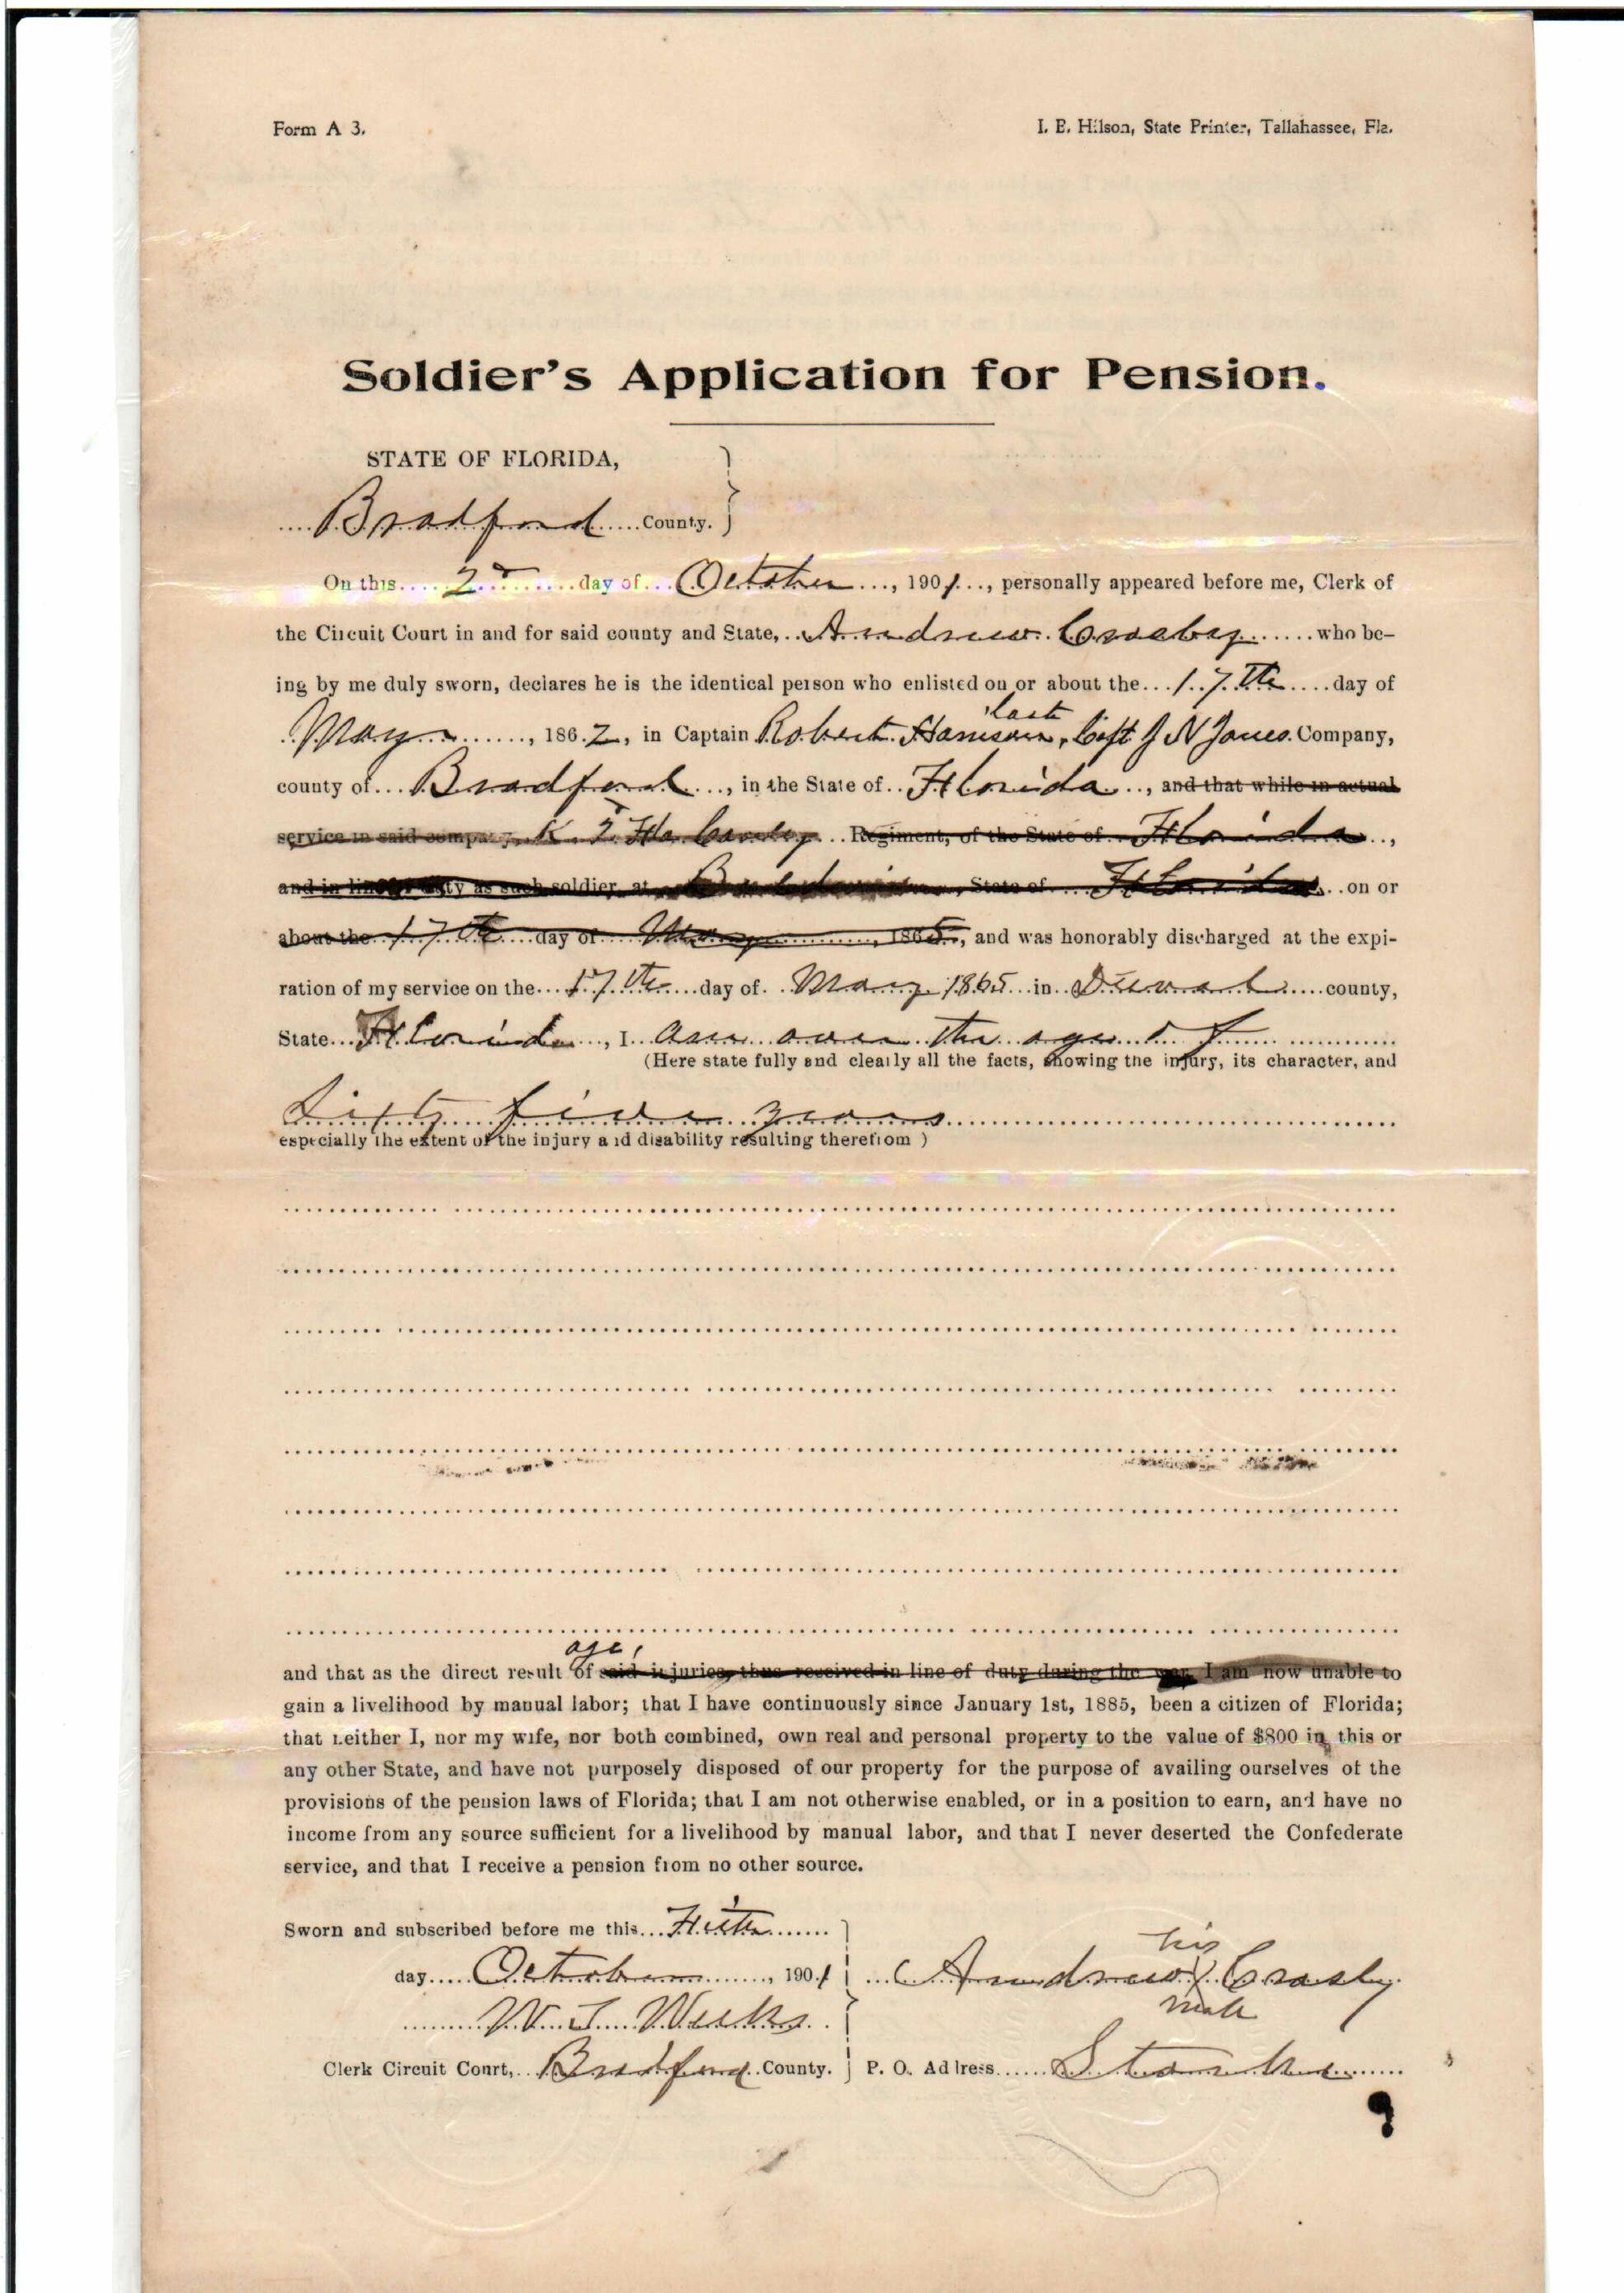 Form A 3.
I. B. Hilson, State Printer, Tallahassee, Fla.
Soldier's Application for Pension.
STATE OF FLORIDA,
Bradford County.
On this 2d day of October, 1901, personally appeared before me, Clerk of
the Circuit Court in and for said county and State, Andrew Crosby who be-
ing by me duly sworn, declares he is the identical person who enlisted on or about the 17th day of
last
May, 1862, in Captain Robert Harrison, Capt J N Jones Company,
county of Bradford, in the State of Florida, and that while in actual
service in said company, K 2 Fla Cavalry Regiment, of the State of Florida,
and in line duty as such soldier, at State of Florida on or
about the 17th day of May, 1865, and was honorably discharged at the expi-
ration of my service on the 17th day of May 1865 in Duval county,
State Florida, I am over the age of
(Here state fully and clearly all the facts, showing the injury, its character, and
Sixty five years
especially the extent of the injury and disability resulting therefrom )
age,
and that as the direct result of said injuries, thus received in line of duty during the war, I am now unable to
gain a livelihood by manual labor; that I have continuously since January 1st, 1885, been a citizen of Florida;
that neither I, nor my wife, nor both combined, own real and personal property to the value of $800 in this or
any other State, and have not purposely disposed of our property for the purpose of availing ourselves of the
provisions of the pension laws of Florida; that I am not otherwise enabled, or in a position to earn, and have no
income from any source sufficient for a livelihood by manual labor, and that I never deserted the Confederate
service, and that I receive a pension from no other source.
Sworn and subscribed before me this
day October, 1901
his
Andrew X Crosby
mark
W. T. Weeks
Clerk Circuit Court, Bradford County.
P. O. Address Starke